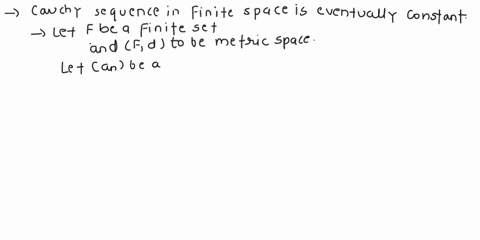 → Cauchy sequence in Finite space is eventually constant.
→ Let F be a Finite set
and (F, d) to be metric space.
Let (an) be a